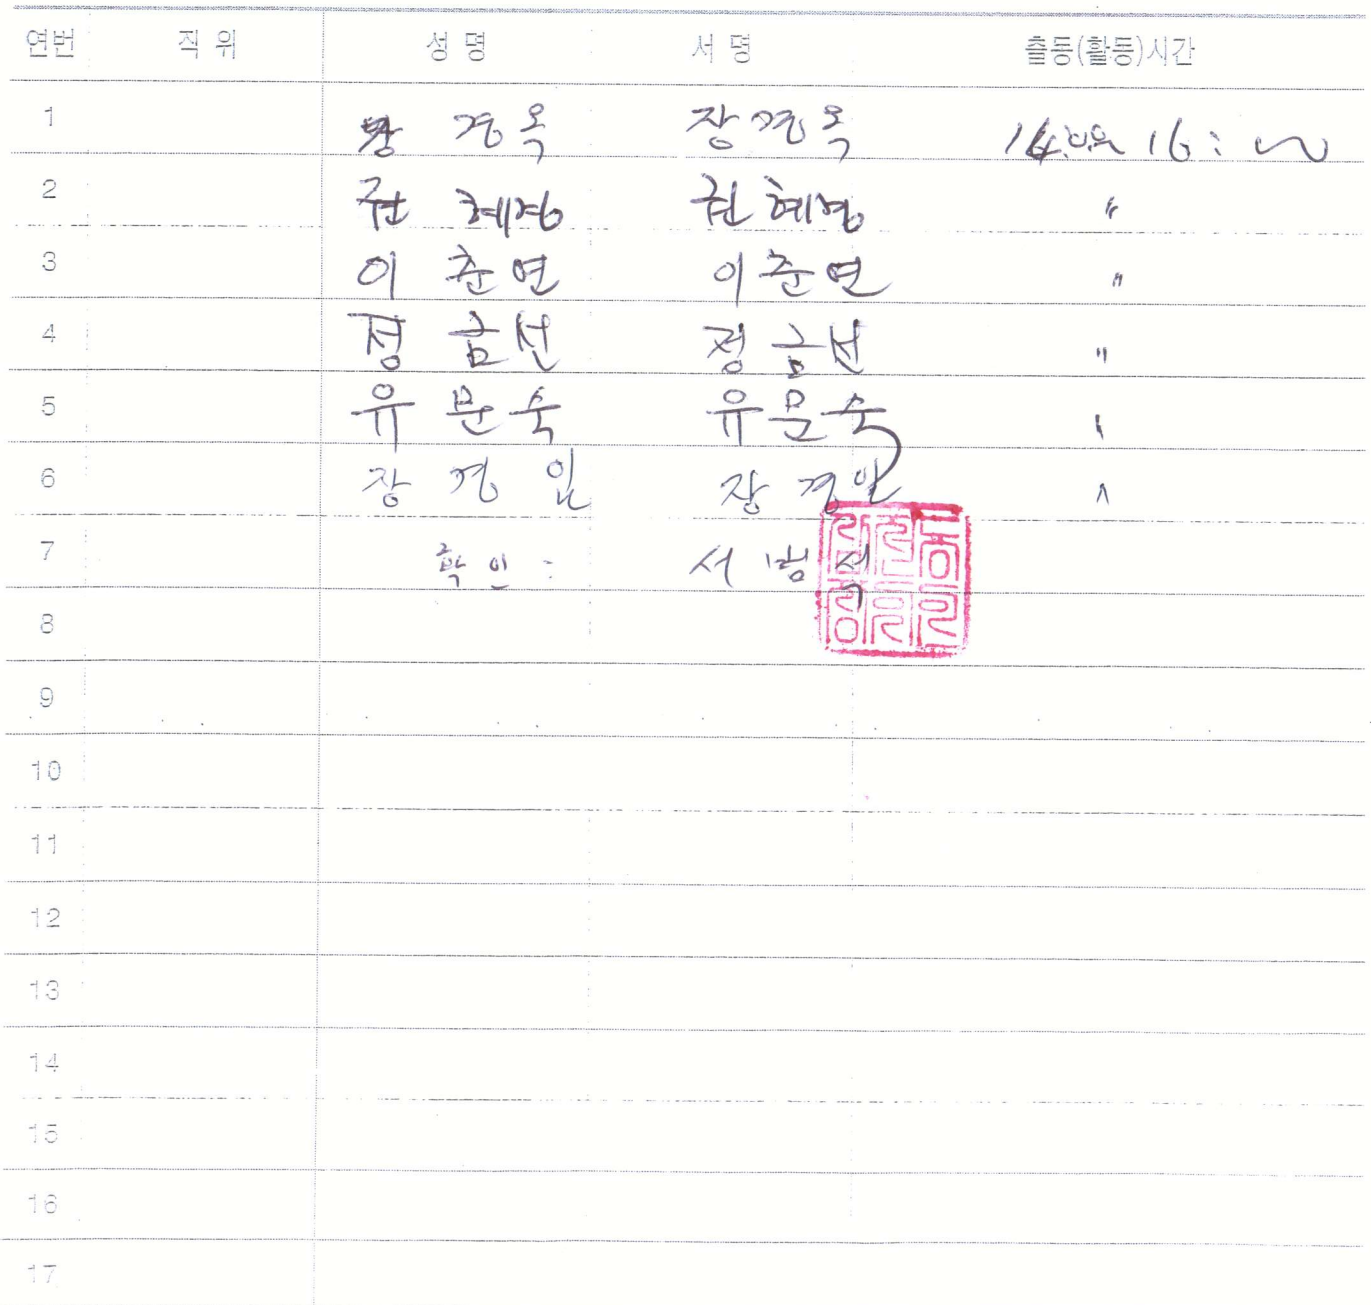 연번 직위 성명 서명 출동(활동)시간
1 장 경옥 장경옥 16:
2 권 혜경 권혜경 "
3 이 춘연 이춘연 "
4 정 금선 정금선 "
5 유 문숙 유문숙 "
6 장 경임 장경임 "
7 확인: 서
8
9
10
11
12
13
14
15
16
17